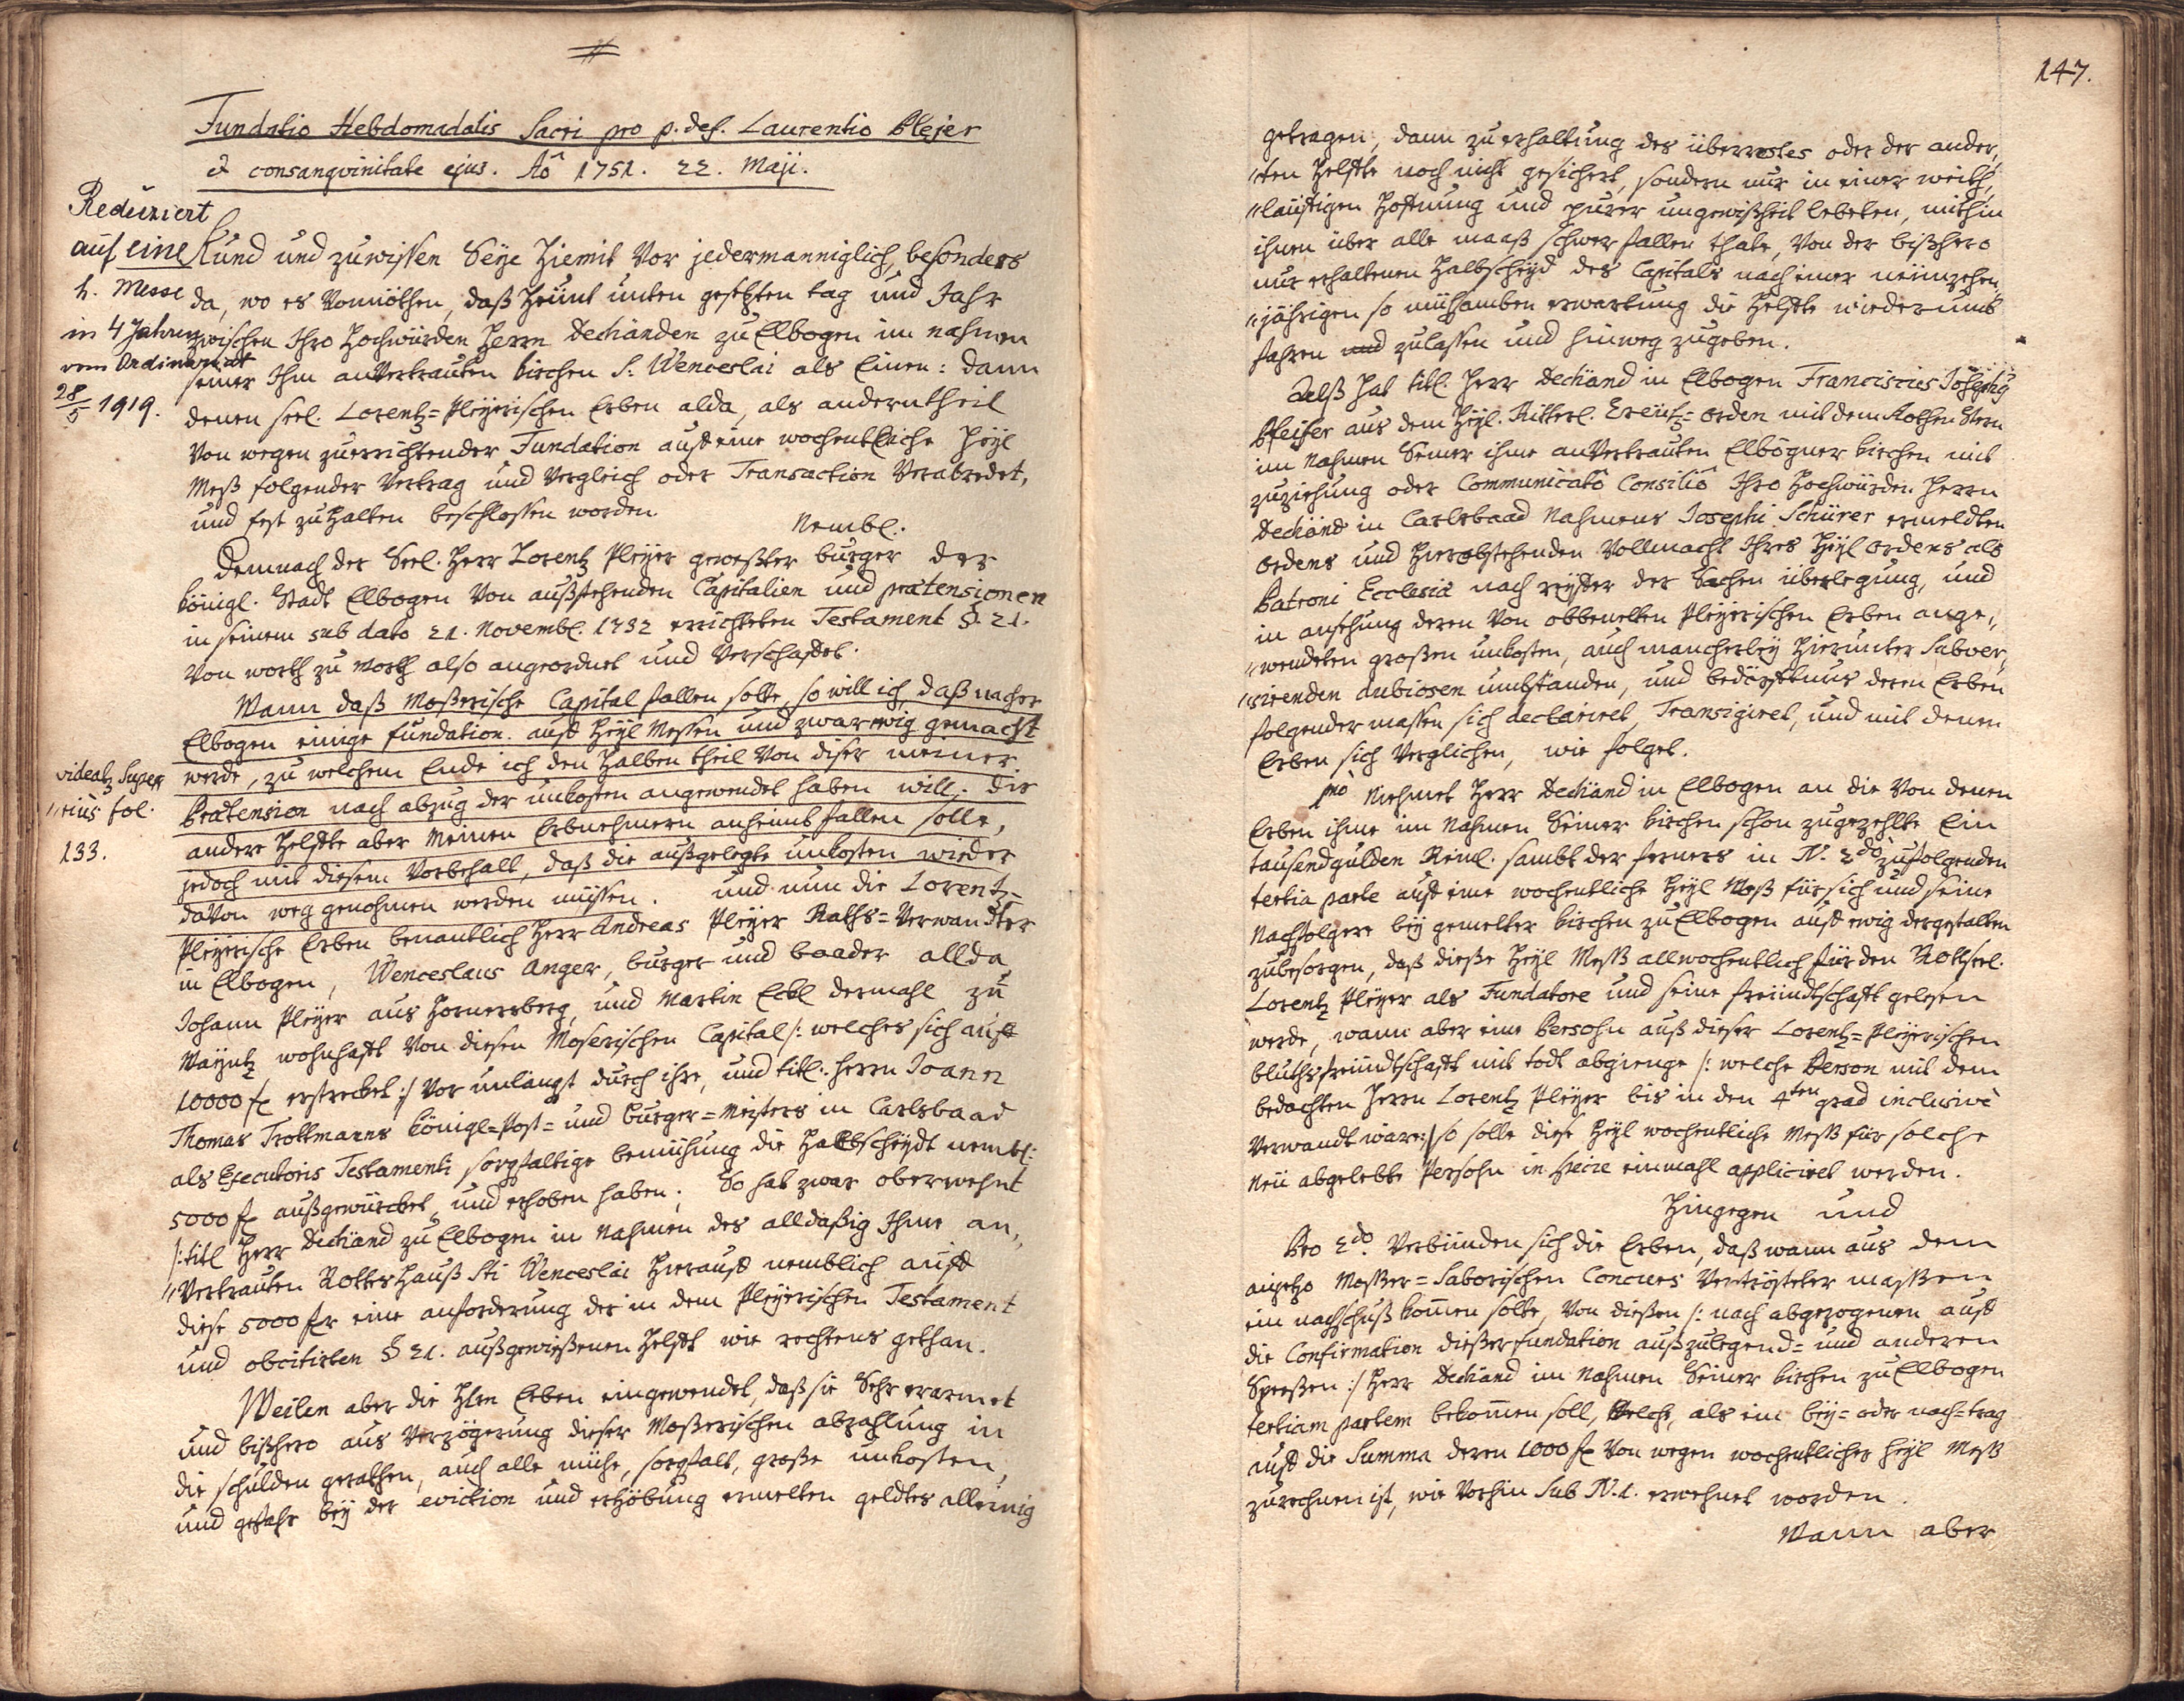 Fundatio Hebdomadalis Sacri pro p. def. Laurentio Plejer
& consangvinitate ejus. Aô 1751. 22. Maji.
Reduziert
auf eine
h. Messe
in 4 Jahren
vom Ordinariat
28/5 1919.
Kund und zuwissen Seye Hiemit Vor jedermanniglich, besonders
da, wo es Vonnöthen, daß Heünt unten gesetzten tag und Jahr
zwischen Ihro Hochwürden Herrn Dechanden zu Elbogen im nahmen
seiner Ihm anVertrauten Kirchen S. Wenceslai als Einen: dann
denen seel. Lorentz=Pleÿerischen Erben alda, als anderntheil
Von wegen zuerrichtender Fundation auff eine wochentliche Heÿl
Meß folgender Vertrag und Vergleich oder Transaction Verabredet,
und fest zuHalten beschlossen worden.
Nembl.
Demnach der Seel. Herr Lorentz Pleÿer geweßter burger der
königl. Stadt Elbogen Von außstehenden Capitalien und prætensionen
in seinem sub dato 21. Novembl. 1732 errichteten Testament §. 21.
Von worth zu worth also angeordnet und Verschaffet.
Wann daß Moßerische Capital fallen solte, so will ich daß nacher
Elbogen einige fundation auff Heÿl Messen und zwar ewig gemacht
werde, zu welchem Ende ich den Halben theil Von diser meiner
videatz Supe„
„rius fol.
133.
Prætension nach abzug der unkosten angewendet haben will, die
andere Helffte aber meinen Erbnehmern anheimb fallen solle,
jedoch mit diesem Vorbehalt, daß die außgelegte unkosten wieder
daVon weg genohmen werden müssen. und nun die Lorentz=
Pleÿerische Erben benantlich Herr Andreas Pleÿer Raths=Verwandter
in Elbogen, Wenceslaus Anger, burger und baader allda,
Johann Pleÿer aus Hornersberg, und Martin Eckl dermahl zu
Maÿntz wohnhafft Von diesen Moserischen Capital /: welches sich auff
10000 f erstrecket :/ Vor unlängst durch ihre, und titl. Herrn Joann
Thomas Trottmanns königl=Post= und burger=Meisters in Carlsbaad
als Executoris Testamenti sorgfaltige bemühung die Halbscheÿdt nembl:
5000 f außgewürcket, und erhoben haben; So hat zwar oberwehnt
/: titl Herr Dechand zu Elbogen in Nahmen des alldaßig Ihme an„
„Vertrauten GottesHauß Sti Wenceslai Hierauff nemblich auff
diese 5000 f eine anforderung der in dem Pleÿerischen Testament
und obcitirten § 21. außgewießenen Helfft wie rechtens gethan.
Weilen aber die Hlen Erben eingewendet, daß sie Sehr erarmet
und bißhero aus Verzögerung dieser Moßerischen abzahlung in
die schulden gerathen, auch alle mühe, sorgfalt, große unkosten,
und gefahr beÿ der eviction und erhöbung ermelten geldtes alleinig
147.
getragen, dann zu erhaltung des überrestes oder der ander„
„ten Helffte noch nicht gesichert, sondern nur in einer weith„
„läuffigen Hoffnung und purer ungewißheit lebeten, mithin
ihnen über alle maaß schwer fallen thäte, Von der bißhero
nur erhaltenen Halbscheÿd des Capitals nach einer neünzehen„
„jährigen so mühsamben erwartung die Helffte wiederumb
fahren zulassen und hinweg zugeben.
Alß hat titl. Herr Dechand in Elbogen Franciscus Josephus
Pfeifer aus dem Heÿl. Ritterl. Creütz=Orden mit dem Rothen Stern
im Nahmen Seiner ihme anVertrauten Elbogner Kirchen mit
zuziehung oder Communicatô Consiliô Ihro Hochwürden Herrn
Dechand in Carlsbaad Nahmens Josephi Schürer ermeldten
Ordens und Hierobstehenden Vollmacht Ihres Heÿl Ordens als
Patroni Ecclesiæ nach reiffer der Sachen überlegung, und
in ansehung deren Von obbemelten Pleÿerischen Erben ange„
„wendeten großen unkosten, auch mancherleÿ Hierunter Subver„
„sirenden dubiosen umbständen, und bedörfftnus deren Erben
folgender massen sich declariret, Transigiret, und mit denen
Erben sich Verglichen, wie folget.
pmò Niehmet Herr Dechand in Elbogen an die Von denen
Erben ihme im Nahmen Seiner Kirchen schon zugezehlte Ein
tausend gulden Reinl. sambt der ferners in N. 2do zufolgenden
tertia parte auff eine wochentliche Heÿl Meß für sich und seine
Nachfolgere beÿ gemelter Kirchen zu Elbogen auff ewig dergestalten
zubesorgen, daß dieße Heÿl Meß allwochentlich für den Gottseel.
Lorentz Pleÿer als Fundatore und seine freündtschafft gelesen
werde, wann aber eine Persohn auß dieser Lorentz=Pleÿerischen
bluthsfreündtschafft mit todt abgienge /: welche Person mit dem
bedachten Herrn Lorentz Pleÿer bis in den 4ten grad inclusivè
Verwandt wäre :/ so solle diese Heÿl wochentliche Meß für solche
Neü abgelebte Persohn in specie einmahl appliciret werden.
Hingegen und
Pro 2do. Verbünden sich die Erben, daß wann aus dem
anjetzo Moßer=Saborischen Concurs Vertrösteter maßen
ein nachschuß kommen solte, Von dießen /: nach abgezogenen auff
die Confirmation dießer fundation außzulegend= und anderen
Speeßen :/ Herr Dechand im Nahmen Seiner Kirchen zu Elbogen
tertiam partem bekommen soll, welche, als ein beÿ= oder nach=trag
auff die Summa deren 1000 f Von wegen wochentlicher Heÿl Meß
zurechnen ist, wie Vorhin Sub N. 1. erwehnet worden.
Wann aber